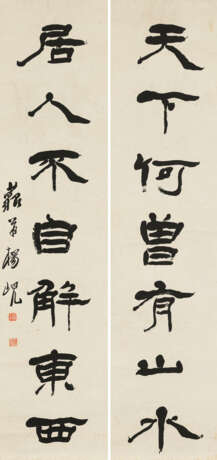 天下何曾有山水
居人不自解東西
藐翁楊峴